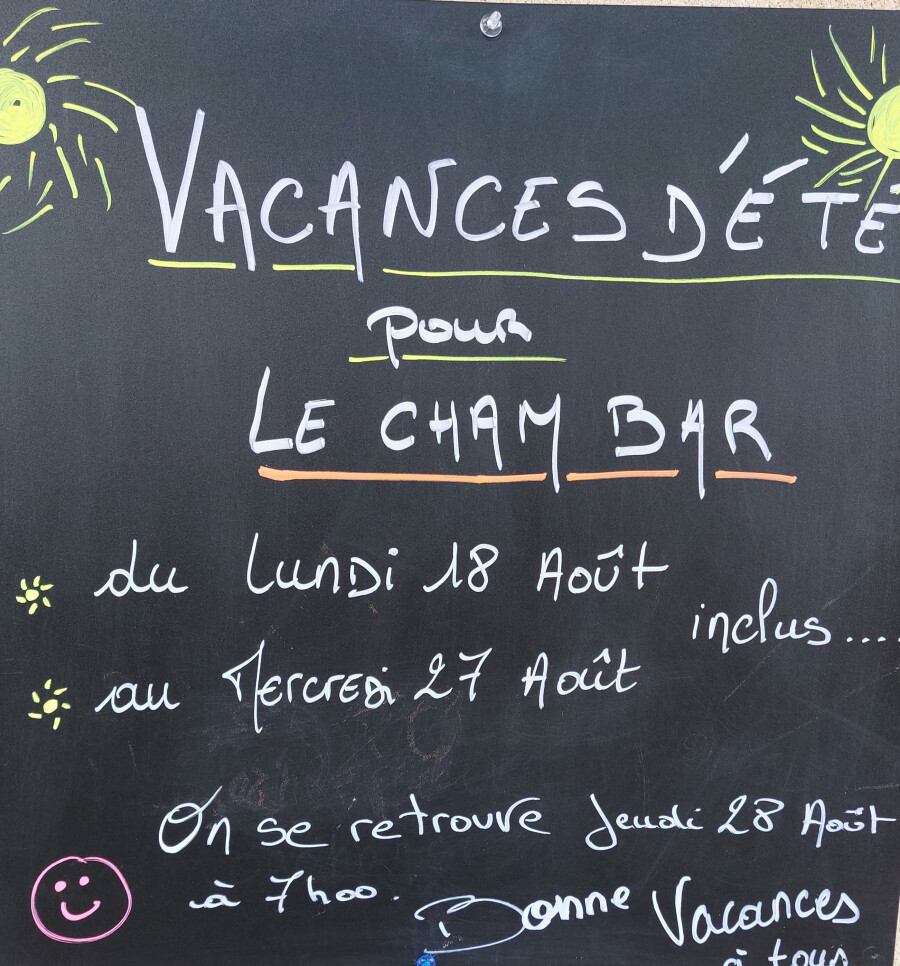 VACANCES D'ÉTÉ
pour
LE CHAM BAR
du Lundi 18 Août
inclus....
au Mercredi 27 Août
On se retrouve Jeudi 28 Août
à 7h00.
Bonne Vacances
à tous